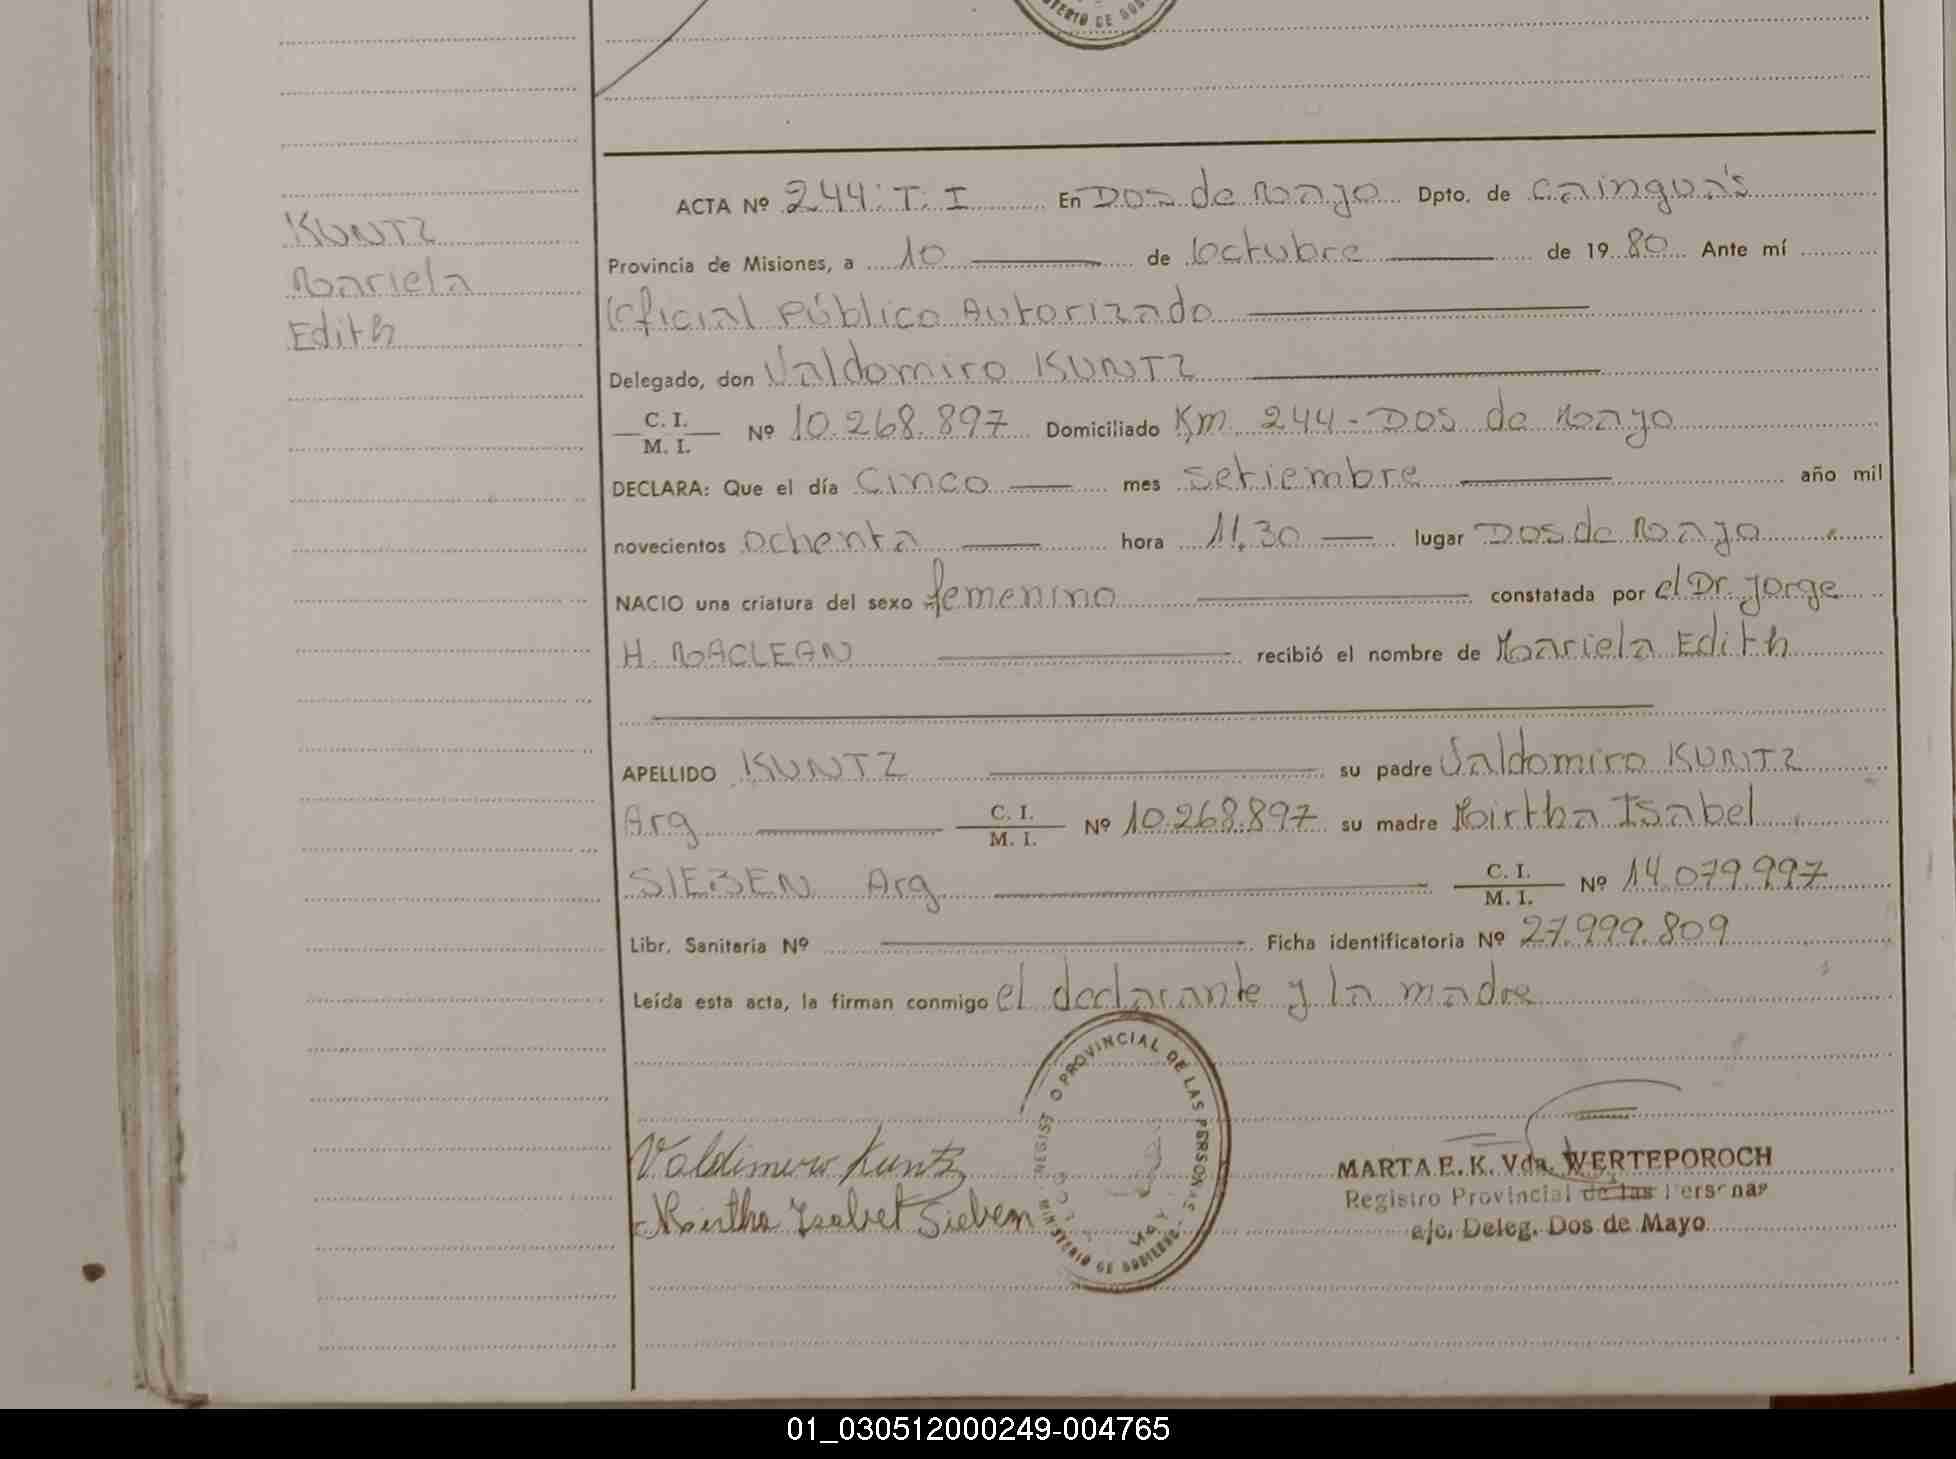 MINISTERIO DE GOBI
KUNTZ
Mariela
Edith
ACTA Nº 244: T: I En Dos de Mayo Dpto. de Cainguá's
Provincia de Misiones, a 10 de Octubre de 1980 Ante mí
Oficial Público Autorizado
Delegado, don Valdomiro KUNTZ
C. I.
M. I. Nº 10.268.897 Domiciliado Km. 244 - Dos de Mayo
DECLARA: Que el día cinco mes setiembre año mil
novecientos ochenta hora 11.30 lugar Dos de Mayo
NACIO una criatura del sexo femenino constatada por el Dr. Jorge
H. MACLEAN recibió el nombre de Mariela Edith
APELLIDO KUNTZ su padre Valdomiro KUNTZ
Arg C. I.
M. I. Nº 10.268.897 su madre Mirtha Isabel
SIEBEN Arg C. I.
M. I. Nº 14.079.997
Libr. Sanitaria Nº Ficha identificatoria Nº 27.999.809
Leída esta acta, la firman conmigo el declarante y la madre
REGISTRO PROVINCIAL DE LAS PERSONAS
MINISTERIO DE GOBIERNO
Valdimero Kuntz
Mirtha Isabel Sieben
MARTA E. K. Vda. WERTEPOROCH
Registro Provincial de las Personas
a/c. Deleg. Dos de Mayo
01_030512000249-004765